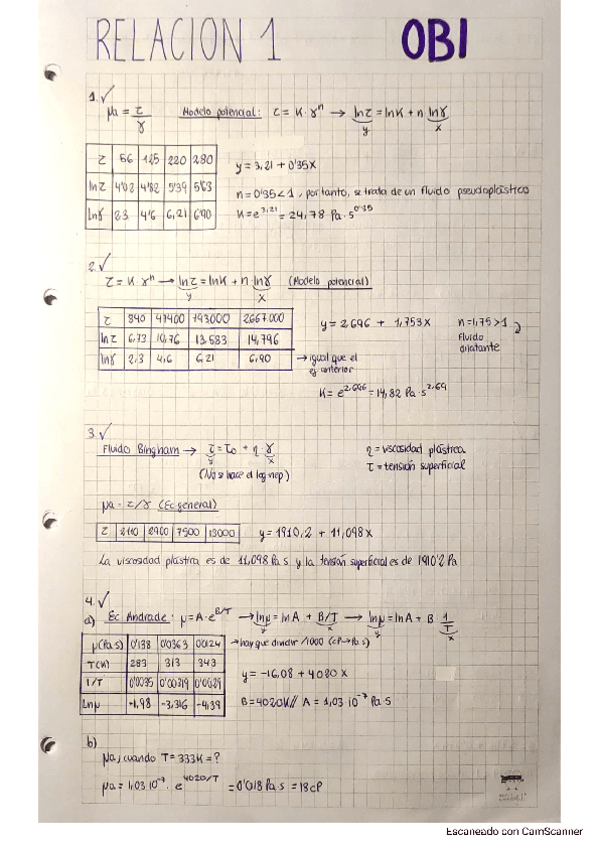 RELACION 1 OBI
1. ✓
μa = τ/γ Modelo potencial: τ = K · γⁿ → lnτ = lnK + n lnγ
y x
τ 56 125 220 280
lnτ 4'02 4'82 5'39 5'63
lnγ 2.3 4'6 6,21 6'90
y = 3,21 + 0'35x
n = 0'35 < 1, por tanto, se trata de un fluido pseudoplástico
K = e^3,21 = 24,78 Pa · s^0'35
2. ✓
τ = K · γⁿ → lnτ = lnK + n · lnγ (Modelo potencial)
y x
τ 840 47400 793000 2667.000
lnτ 6,73 10,76 13.583 14,796
lnγ 2,3 4,6 6,21 6,90
→ igual que el
ej anterior
y = 2.696 + 1,753x n = 1,75 > 1
Fluido
dilatante
K = e^2,696 = 14,82 Pa · s^2,69
3. ✓
Fluido Bingham → τ = τ₀ + η · γ
y x
(No se hace el log nep)
η = viscosidad plástica
τ = tensión superficial
μa = τ/γ (Ec general)
τ 2110 2900 7500 13000 y = 1910,2 + 11,098x
La viscosidad plástica es de 11,098 Pa s y la tensión superficial es de 1910'2 Pa
4. ✓
a) Ec Andrade: μ = A · e^B/T → lnμ = lnA + B/T → lnμ = lnA + B · 1/T
y x y x
μ(Pa s) 0'138 0'0363 0'0124 → hay que dividir /1000 (cP → Pa s)
T(K) 283 313 343
1/T 0'0035 0'00319 0'0029
Lnμ -1,98 -3,316 -4,39
y = -16,08 + 4020x
B = 4020K // A = 1,03 · 10⁻⁷ Pa s
b)
μa, cuando T = 333K = ?
μa = 1,03 · 10⁻⁷ · e^4020/T = 0'018 Pa·s = 18cP
Escaneado con CamScanner